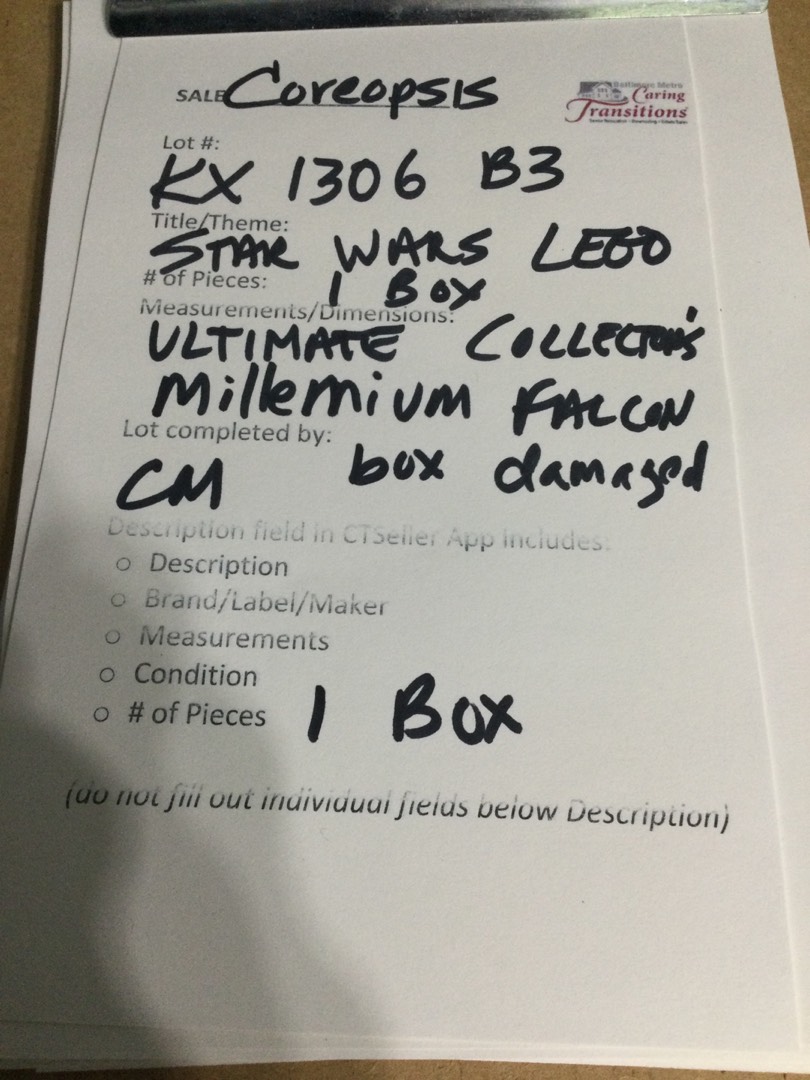 SALE Coreopsis
Baltimore Metro
Caring
Transitions
Lot #:
KX 1306 B3
Title/Theme:
STAR WARS LEGO
# of Pieces: 1 BOX
Measurements/Dimensions:
ULTIMATE COLLECTOR'S
MillEMiUM FALCON
Lot completed by:
CM box damaged
Description field in CTSeller App includes:
○ Description
○ Brand/Label/Maker
○ Measurements
○ Condition
○ # of Pieces 1 BOX
(do not fill out individual fields below Description)